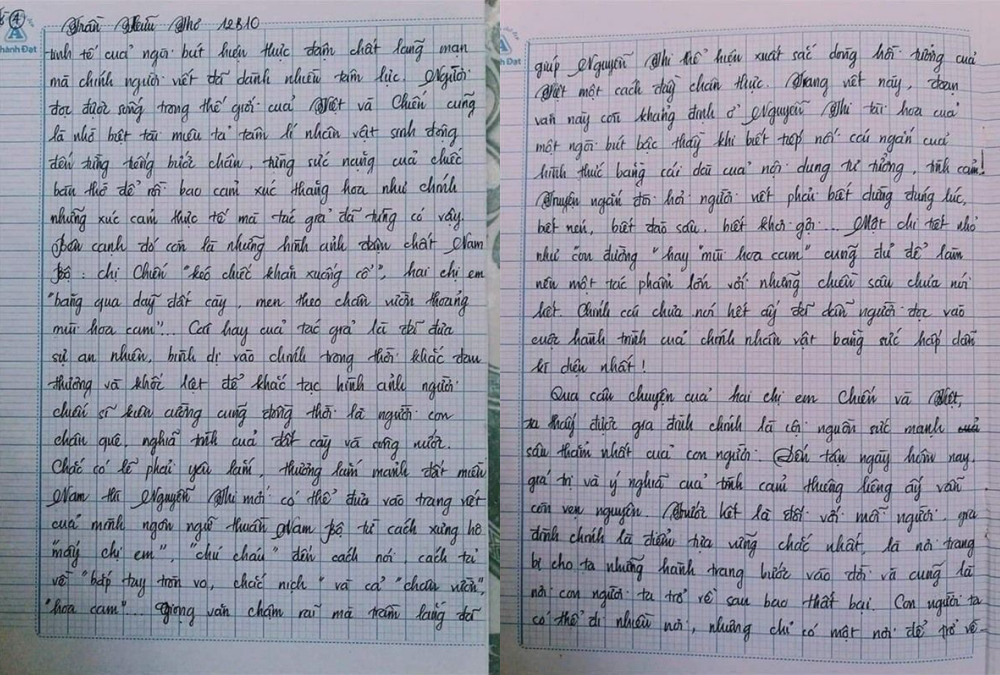 ④
Trần Hữu Thơ 12B10
tinh tế của ngòi bút hiện thực đậm chất lãng mạn
mà chính người viết đã dành nhiều tâm lực. Người
đọc được sống trong thế giới của Việt và Chiến cũng
là nhờ biệt tài miêu tả tâm lí nhân vật sinh động
đến từng tiếng bước chân, từng sức nặng của chiếc
bàn thờ để rồi bao cảm xúc thăng hoa như chính
những xúc cảm thực tế mà tác giả đã từng có vậy.
Bên cạnh đó còn là những hình ảnh đậm chất Nam
Bộ: chị Chiến "kéo chiếc khăn xuống cổ", hai chị em
"băng qua dãy đất cày, men theo chân vườn thoảng
mùi hoa cam"... Cái hay của tác giả là đã đưa
sự an nhiên, bình dị vào chính trong thời khắc đau
thương và khốc liệt để khắc tạc hình ảnh người
chiến sĩ kiên cường cũng đồng thời là người con
chân quê, nghĩa tình của đất cày và sông nước.
Chắc có lẽ phải yêu lắm, thương lắm mảnh đất miền
Nam thì Nguyễn Thi mới có thể đưa vào trang viết
của mình ngôn ngữ thuần Nam Bộ từ cách xưng hô
"mấy chị em", "chú cháu" đến cách nói, cách tả
về "bắp tay tròn vo, chắc nịch" và cả "chân vườn",
"hoa cam"... Giọng văn chậm rãi mà trầm lắng đã
giúp Nguyễn Thi thể hiện xuất sắc dòng hồi tưởng của
Việt một cách đầy chân thực. Trang viết này, đoạn
văn này còn khẳng định ở Nguyễn Thi tài hoa của
một ngòi bút bậc thầy khi biết tiếp nối cái ngắn của
hình thức bằng cái dài của nội dung tư tưởng, tình cảm!
Truyện ngắn đòi hỏi người viết phải biết dừng đúng lúc,
biết nén, biết đào sâu, biết khơi gợi... Một chi tiết nhỏ
như "con đường" hay "mùi hoa cam" cũng đủ để làm
nên một tác phẩm lớn với những chiều sâu chưa nói
hết. Chính cái chưa nói hết ấy đã dẫn người đọc vào
cuộc hành trình của chính nhân vật bằng sức hấp dẫn
kì diệu nhất!
Qua câu chuyện của hai chị em Chiến và Việt,
ta thấy được gia đình chính là cội nguồn sức mạnh
sâu thẳm nhất của con người. Đến tận ngày hôm nay
giá trị và ý nghĩa của tình cảm thiêng liêng ấy vẫn
còn vẹn nguyên. Trước hết là đối với mỗi người, gia
đình chính là điểm tựa vững chắc nhất, là nơi trang
bị cho ta những hành trang bước vào đời và cũng là
nơi con người ta trở về sau bao thất bại. Con người ta
có thể đi nhiều nơi, nhưng chỉ có một nơi để trở về-